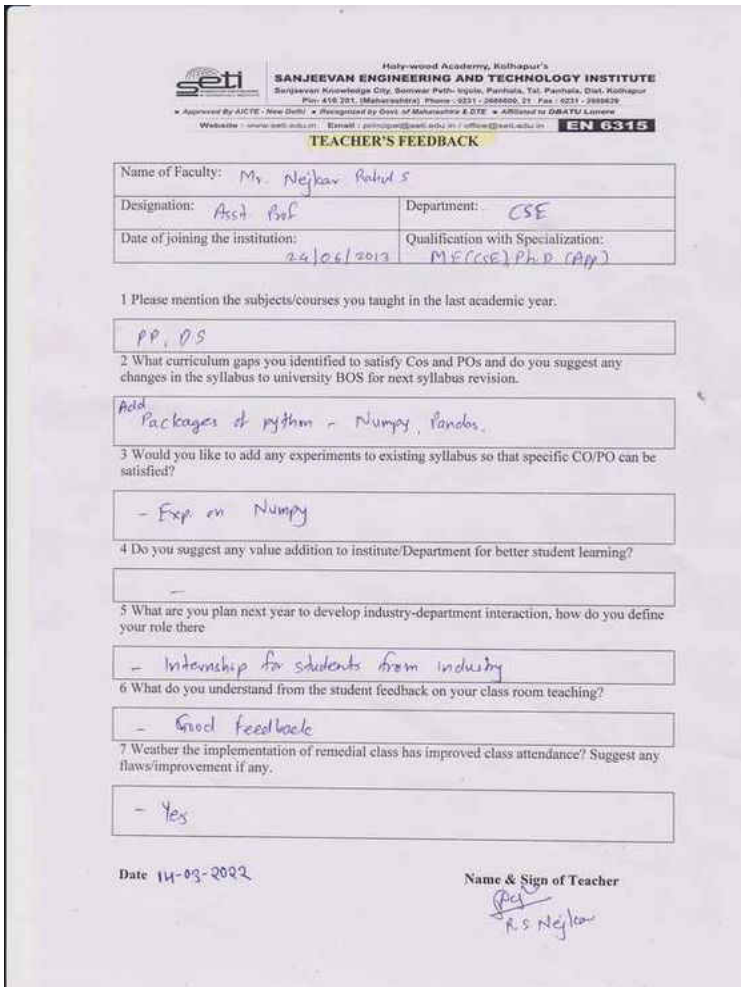 seti
Holy-wood Academy, Kolhapur's
SANJEEVAN ENGINEERING AND TECHNOLOGY INSTITUTE
Sanjeevan Knowledge City, Somwar Peth- Injole, Panhala, Tal. Panhala, Dist. Kolhapur
Pin- 416 201, (Maharashtra) Phone : 0231 - 2686600, 21 Fax : 0231 - 2686629
Approved By AICTE - New Delhi • Recognized by Govt. of Maharashtra & DTE • Affiliated to DBATU Lonere
Website : www.seti.edu.in Email : principal@seti.edu.in / office@seti.edu.in EN 6315
TEACHER'S FEEDBACK
Name of Faculty: Mr. Nejkar Rahul S
Designation: Asst Prof Department: CSE
Date of joining the institution: Qualification with Specialization:
24/06/2013 ME(CSE) Ph.D (App)
1 Please mention the subjects/courses you taught in the last academic year.
PP, DS
2 What curriculum gaps you identified to satisfy Cos and POs and do you suggest any
changes in the syllabus to university BOS for next syllabus revision.
Add
Packages of python - Numpy, Pandas.
3 Would you like to add any experiments to existing syllabus so that specific CO/PO can be
satisfied?
- Exp. on Numpy
4 Do you suggest any value addition to institute/Department for better student learning?
-
5 What are you plan next year to develop industry-department interaction, how do you define
your role there
- Internship for students from industry
6 What do you understand from the student feedback on your class room teaching?
- Good feedback
7 Weather the implementation of remedial class has improved class attendance? Suggest any
flaws/improvement if any.
- Yes
Date 14-03-2022
Name & Sign of Teacher
R S Nejkar